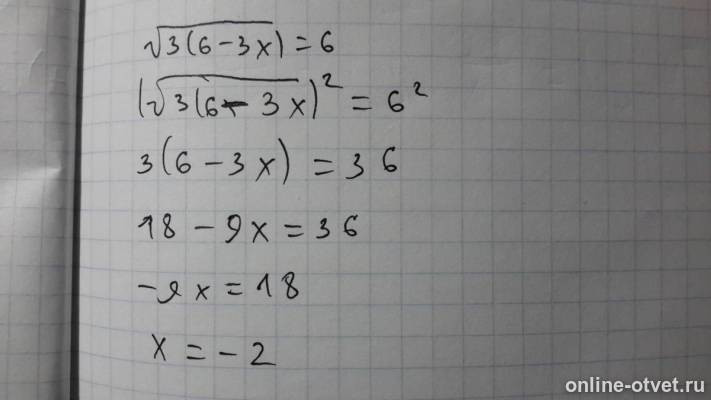 √3(6-3x) = 6
(√3(6-3x))² = 6²
3(6-3x) = 36
18-9x = 36
-9x = 18
x = -2
online-otvet.ru